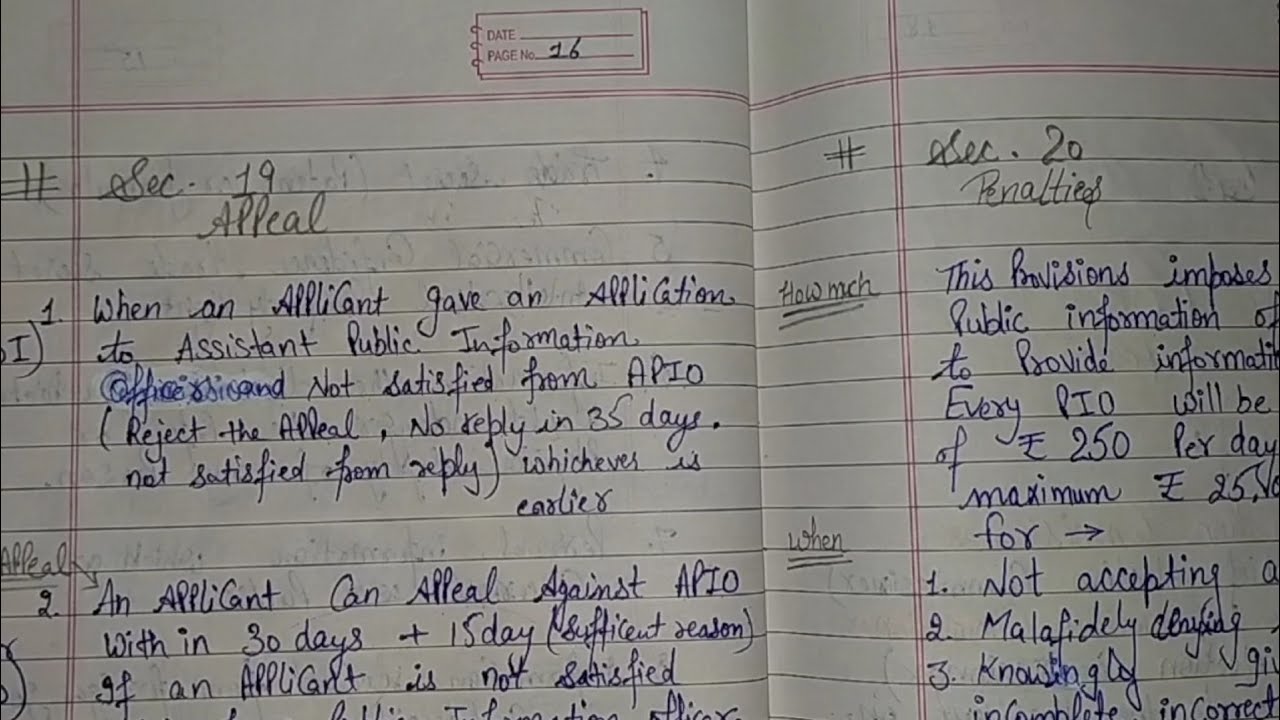 DATE
PAGE No. 16
# Sec. 19
Appeal
1. When an Applicant gave an Application
I) to Assistant Public Information
and Not satisfied from APIO
(Reject the Appeal, No reply in 35 days.
not satisfied from reply) whichever is
earlier
Appeal
2. An Applicant Can Appeal Against APIO
With in 30 days + 15 day (sufficent reason)
If an Applicant is not satisfied
Information officer
# Sec. 20
Penalties
How mch
This Provisions imposes
Public information of
to Provide informati
Every PIO will be
of ₹ 250 Per day
maximum ₹ 25,
for →
when
1. Not accepting a
2. Malafidely denying
3. Knowingly gi
incomplete, incorrect